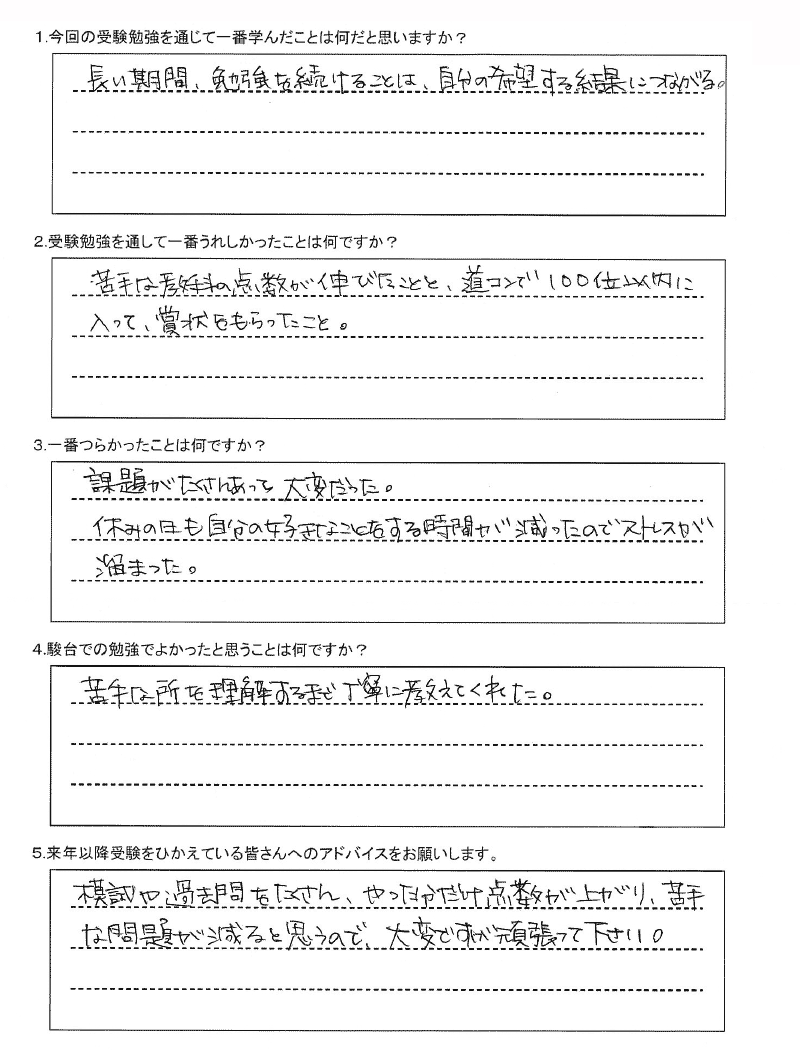 1.今回の受験勉強を通じて一番学んだことは何だと思いますか？
長い期間、勉強を続けることは、自分の希望する結果につながる。
2.受験勉強を通して一番うれしかったことは何ですか？
苦手な教科の点数が伸びたことと、道コンで100位以内に
入って、賞状をもらったこと。
3.一番つらかったことは何ですか？
課題がたくさんあって大変だった。
休みの日も自分の好きなことをする時間が減ったのでストレスが
溜まった。
4.駿台での勉強でよかったと思うことは何ですか？
苦手な所を理解するまで丁寧に教えてくれた。
5.来年以降受験をひかえている皆さんへのアドバイスをお願いします。
模試や過去問をたくさん、やった分だけ点数が上がり、苦手
な問題が減ると思うので、大変ですが頑張って下さい。